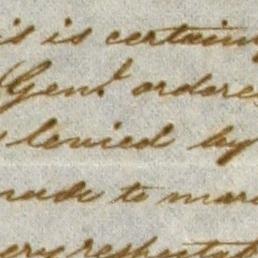 is is certain
Genl. ordere
levied by
made to mar
ery respectab